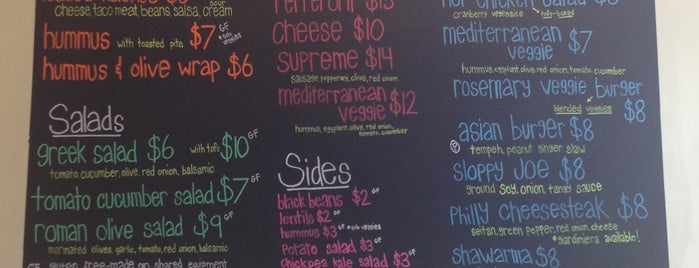 loaded nachos $8 sour
Cheese taco meat, beans, salsa, cream
hummus with toasted pita $7 GF
*sub veggies
hummus & olive wrap $6
Salads
greek salad $6 with tofu $10 GF
tomato, cucumber, olive, red onion, balsamic
tomato cucumber salad $7 GF
roman olive salad $9 GF
marinated olives, garlic, tomato, red onion, balsamic
GF gluten free-made on shared equipment
pepperoni $13
cheese $10
supreme $14
sausage, pepperoni, olive, red onion
mediterranean veggie $12
hummus, eggplant, olive, red onion, tomato, cucumber
Sides
black beans $2 GF
lentils $2 GF
hummus $3 GF *sub veggies
potato salad $3 GF
chickpea kale salad $3 GF
chicken salad $8
cranberry vegenaise tofu-based
mediterranean veggie $7
hummus, eggplant, olive, red onion, tomato, cucumber
rosemary veggie burger
blended veggies $8
asian burger $8
tempeh, peanut ginger slaw
sloppy joe $8
ground soy, onion, tangy sauce
philly cheesesteak $8
seitan, green pepper, red onion, cheese
*giardiniera available!
shawarma $8